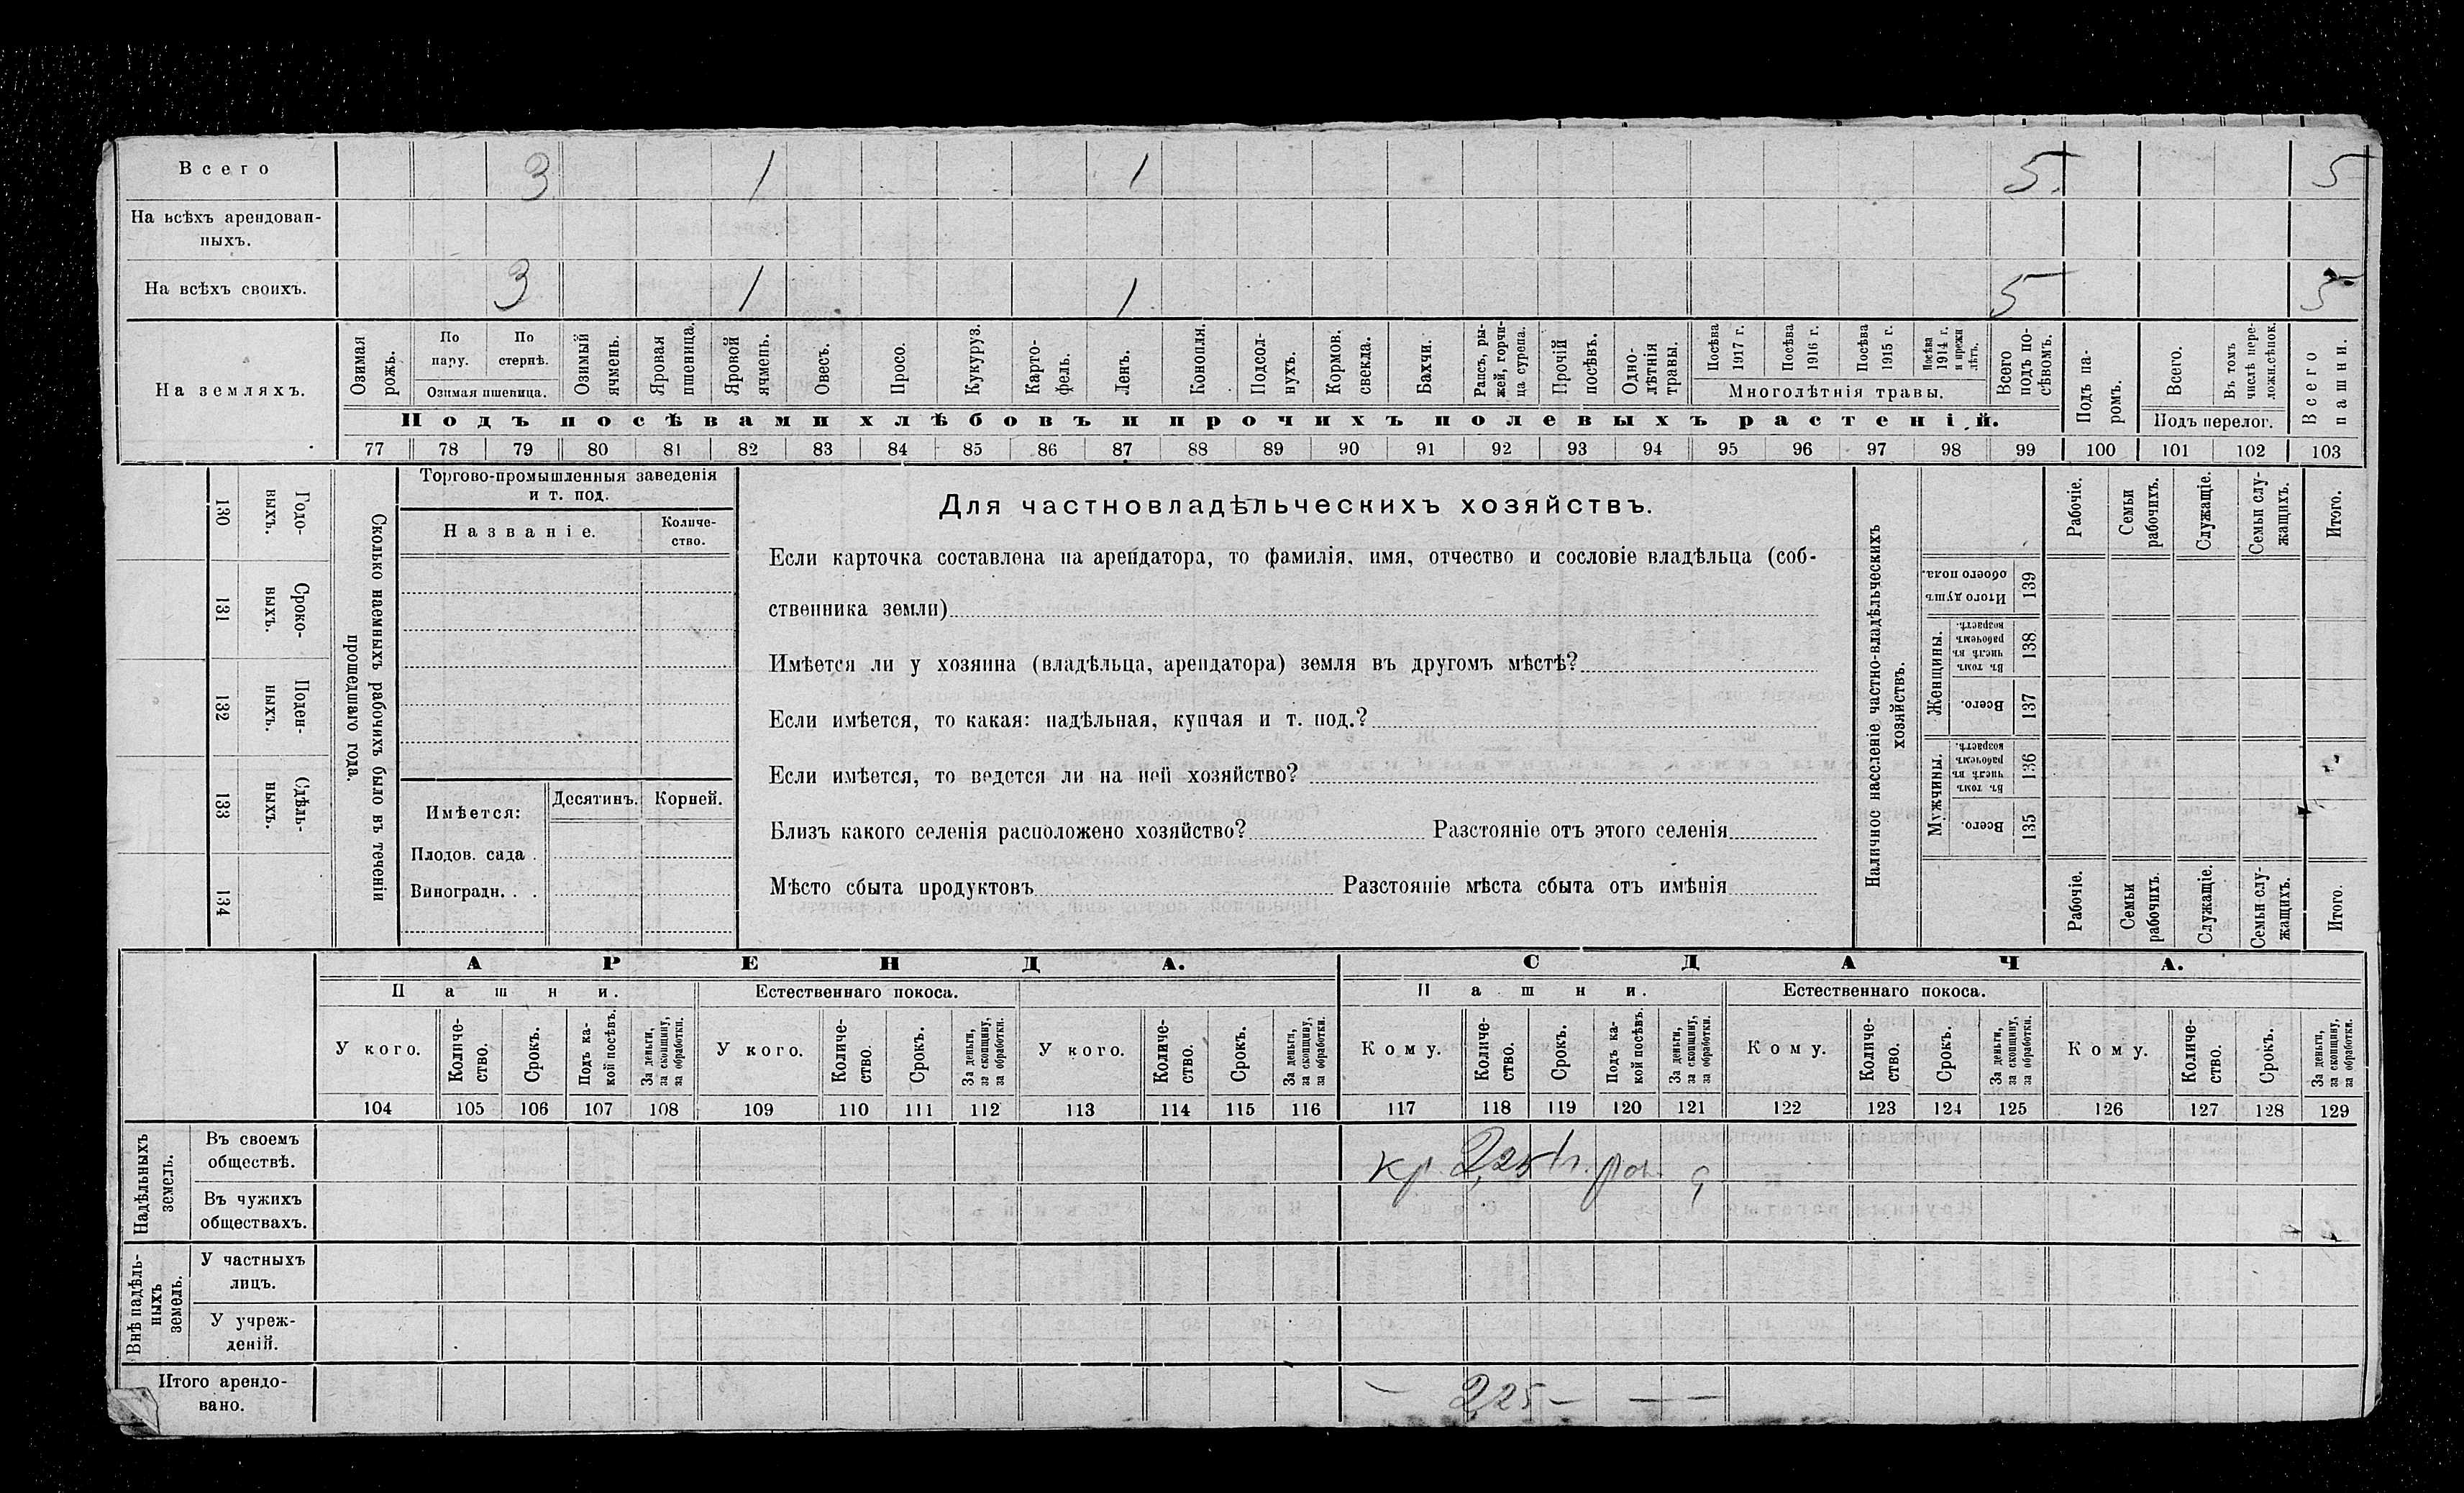 Всего 3 1 1 5. 5
На всѣхъ арендован-
ныхъ.
На всѣхъ своихъ. 3 1 1 5 5
На земляхъ.
Озимая рожь.
По пару.
По стернѣ.
Озимая пшеница.
Озимый ячмень.
Яровая пшеница.
Яровой ячмень.
Овесъ.
Просо.
Кукуруз.
Карто-
фель.
Ленъ.
Конопля.
Подсол-
нухъ.
Кормов. свекла.
Бахчи.
Рапсъ, ры-
жей, горчи-
ца сурепа.
Прочій посѣвъ.
Одно-
лѣтнія травы.
Посѣва 1917 г.
Посѣва 1916 г.
Посѣва 1915 г.
Посѣва 1914 г. и прежн лѣтъ.
Многолѣтнія травы.
Всего подъ по-
сѣвомъ.
Подъ па-
ромъ.
Всего.
Въ томъ числѣ пере-
ложн.сѣнок.
Подъ перелог.
Всего пашни.
Подъ посѣвами хлѣбовъ и прочихъ полевыхъ растеній.
77 78 79 80 81 82 83 84 85 86 87 88 89 90 91 92 93 94 95 96 97 98 99 100 101 102 103
130 Годо-
выхъ.
131 Сроко-
ныхъ.
132 Поден-
ныхъ.
133 Сдѣль-
ныхъ.
134
Сколько наемныхъ рабочихъ было въ теченіи
прошедшаго года.
Торгово-промышленныя заведенія
и т. под.
Названіе.
Количе-
ство.
Имѣется: Десятинъ. Корней.
Плодов. сада .
Виноградн. . .
Для частновладѣльческихъ хозяйствъ.
Если карточка составлена на арендатора, то фамилія, имя, отчество и сословіе владѣльца (соб-
ственника земли)
Имѣется ли у хозяина (владѣльца, арендатора) земля въ другомъ мѣстѣ?
Если имѣется, то какая: надѣльная, купчая и т. под.?
Если имѣется, то ведется ли на ней хозяйство?
Близъ какого селенія расположено хозяйство? Разстояніе отъ этого селенія
Мѣсто сбыта продуктовъ Разстояніе мѣста сбыта отъ имѣнія
Наличное населеніе частно-владѣльческихъ
хозяйствъ.
Рабочіе.
Семьи рабочихъ.
Служащіе.
Семьи слу-
жащихъ.
Итого.
Итого душъ обоего пола. 139
Женщины.
Въ томъ числѣ въ рабочемъ возрастѣ. 138
Всего. 137
Мужчины.
Въ томъ числѣ въ рабочемъ возрастѣ. 136
Всего. 135
Рабочіе.
Семьи рабочихъ.
Служащіе.
Семьи слу-
жащихъ.
Итого.
АРЕНДА. СДАЧА.
Пашни. Естественнаго покоса. Пашни. Естественнаго покоса.
У кого.
Количе-
ство.
Срокъ.
Подъ ка-
кой посѣвъ.
За деньги,
за скопщину,
за обработки.
У кого.
Количе-
ство.
Срокъ.
За деньги,
за скопщину,
за обработки.
У кого.
Количе-
ство.
Срокъ.
За деньги,
за скопщину,
за обработки.
Кому.
Количе-
ство.
Срокъ.
Подъ ка-
кой посѣвъ.
За деньги,
за скопщину,
за обработки.
Кому.
Количе-
ство.
Срокъ.
За деньги,
за скопщину,
за обработки.
Кому.
Количе-
ство.
Срокъ.
За деньги,
за скопщину,
за обработки.
104 105 106 107 108 109 110 111 112 113 114 115 116 117 118 119 120 121 122 123 124 125 126 127 128 129
Надѣльныхъ
земель.
Въ своемъ
обществѣ.
кр 2,25
Въ чужихъ
обществахъ.
Внѣ надѣль-
ныхъ
земель.
У частныхъ
лицъ.
У учреж-
деній.
Итого арендо-
вано.
— 2,25 — — —